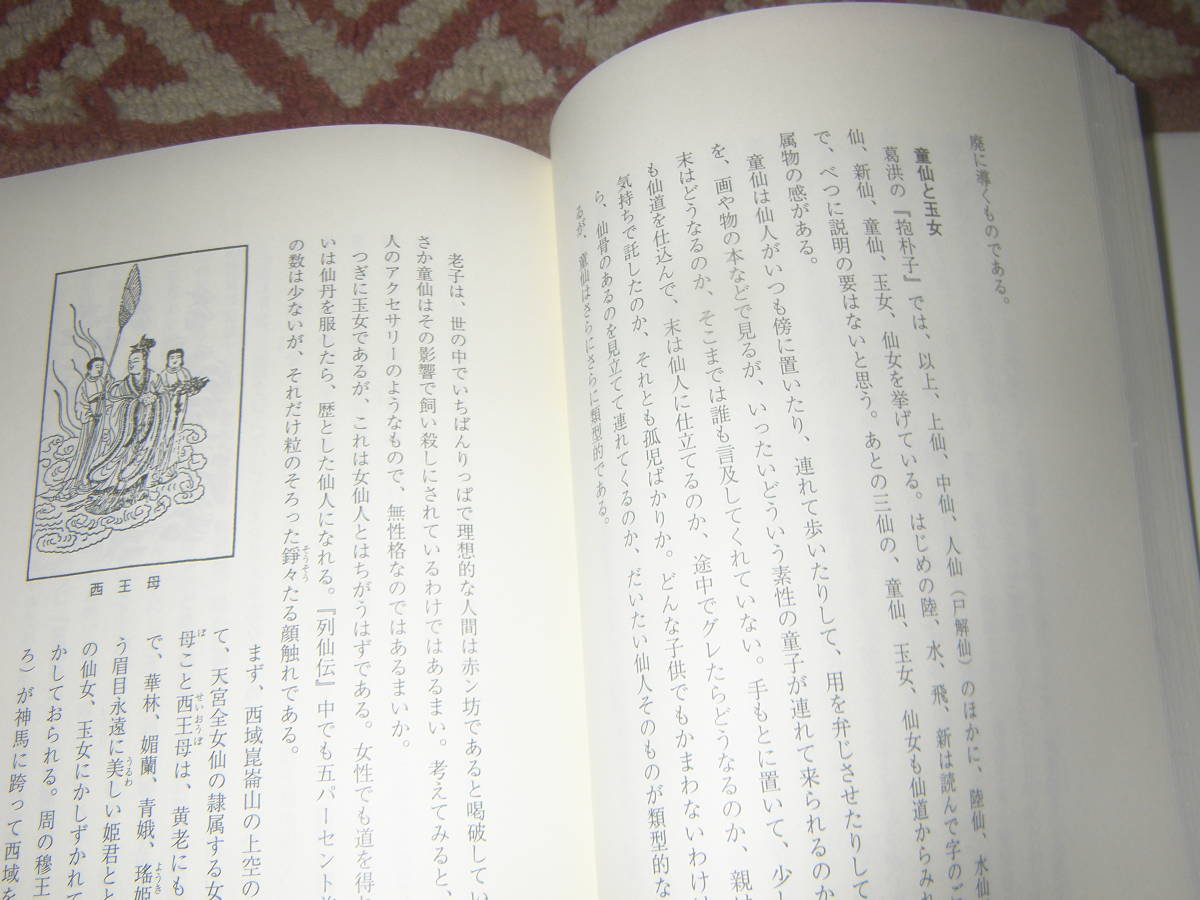 廃に導くものである。
童仙と玉女
葛洪の『抱朴子』では、以上、上仙、中仙、人仙（尸解仙）のほかに、陸仙、水仙
仙、新仙、童仙、玉女、仙女を挙げている。はじめの陸、水、飛、新は読んで字のご
で、べつに説明の要はないと思う。あとの三仙の、童仙、玉女、仙女も仙道からみれ
属物の感がある。
童仙は仙人がいつも傍に置いたり、連れて歩いたりして、用を弁じさせたりして
を、画や物の本などで見るが、いったいどういう素性の童子が連れて来られるのか
末はどうなるのか、そこまでは誰も言及してくれていない。手もとに置いて、少し
も仙道を仕込んで、末は仙人に仕立てるのか、途中でグレたらどうなるのか、親は
気持ちで託したのか、それとも孤児ばかりか。どんな子供でもかまわないわけ
ら、仙骨のあるのを見立てて連れてくるのか、だいたい仙人そのものが類型的な
るが、童仙はさらにさらに類型的である。
老子は、世の中でいちばんりっぱで理想的な人間は赤ン坊であると喝破してい
さか童仙はその影響で飼い殺しにされているわけではあるまい。考えてみると、
人のアクセサリーのようなもので、無性格なのではあるまいか。
つぎに玉女であるが、これは女仙人とはちがうはずである。女性でも道を得
いは仙丹を服したら、歴とした仙人になれる。『列仙伝』中でも五パーセント
の数は少ないが、それだけ粒のそろった錚々そうそうたる顔触れである。
西王母
まず、西域崑崙山の上空の
て、天宮全女仙の隷属する女
母ぼこと西王母せいおうぼは、黄老にも
で、華林、媚蘭、青娥、瑤姫ようき
う眉目永遠に美うるわしい姫君とと
の仙女、玉女にかしずかれて
かしておられる。周の穆王
ろ）が神馬に跨って西域を